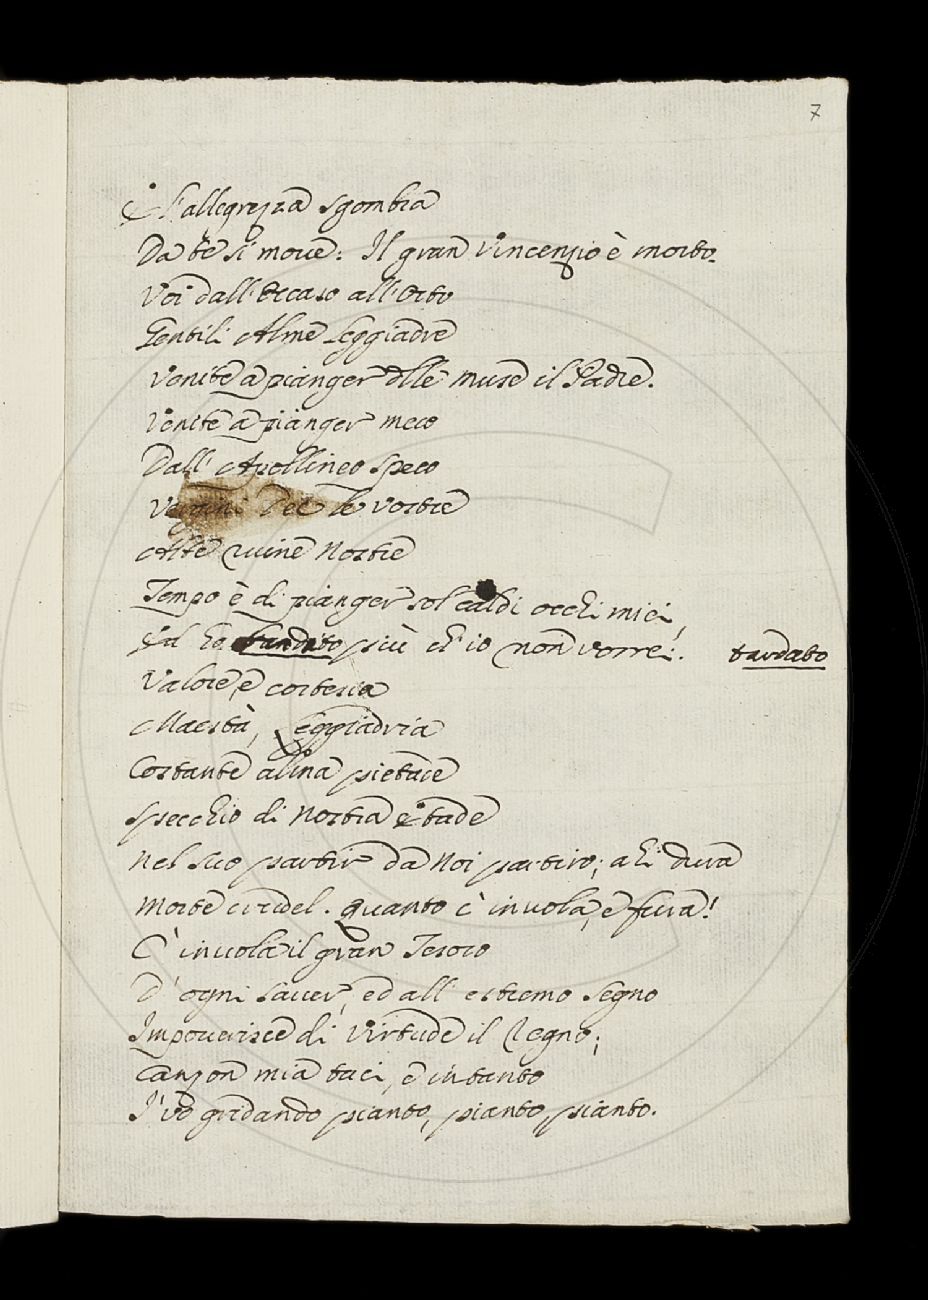 7
E l'allegrezza sgombra
Da te si move: Il gran Vincenzio è morto.
Voi dall'Occaso all'Orto
Gentili Alme leggiadre
Venite a pianger dlle muse il Padre.
Venite a pianger meco
Dall'Apollineo speco
Vergini Dee le vostre
Alte ruine nostre
Tempo è di pianger sol caldi occhi miei,
Ed ha più ch'io non vorrei. tardato
Valore, e cortesia
Maestà, Leggiadria
Costante alma pietade
specchio di nostra etade
nel suo partir da noi partiro; ahi dura
morte crudel. quanto c'invola, e fura!
C'invola il gran Tesoro
D'ogni saver, ed all'estremo segno
Impoverisce di virtude il Regno;
Canzon mia taci, e intanto
I' vo gridando pianto, pianto, pianto.